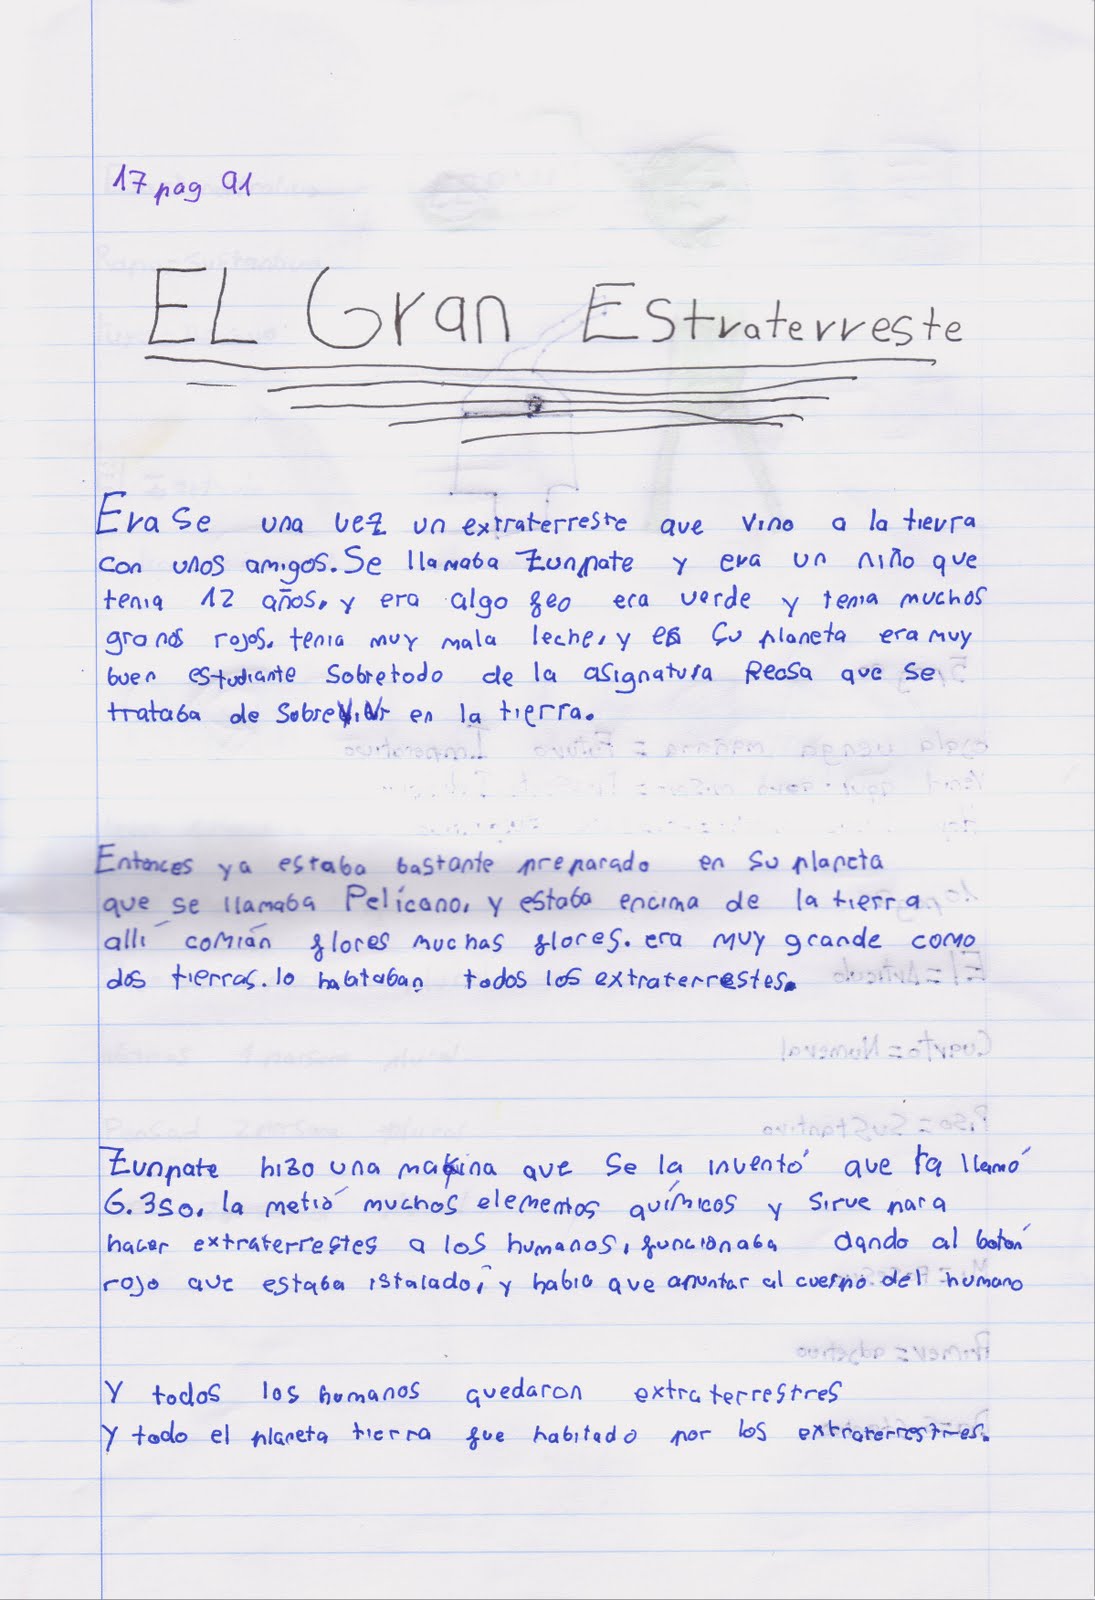 17 pag 91
EL Gran Estraterreste
Erase una vez un extraterreste que vino a la tierra
con unos amigos. Se llamaba Zunpate y era un niño que
tenia 12 años, y era algo feo era verde y tenia muchos
granos rojos. tenia muy mala leche, y en su planeta era muy
buen estudiante sobretodo de la asignatura Reosa que se
trataba de sobrevivir en la tierra.
Entonces ya estaba bastante preparado en su planeta
que se llamaba Pelícano, y estaba encima de la tierra
allí comián flores muchas flores. era muy grande como
dos tierras. lo habitaban todos los extraterrestes.
Zunpate hizo una makina que se la inventó que la llamó
G.3so. la metió muchos elementos químicos y sirve para
hacer extraterrestes a los humanos, funcionaba dando al botón
rojo que estaba istalado, y habia que apuntar al cuerpo del humano
Y todos los humanos quedaron extraterrestres
Y todo el planeta tierra fue habitado por los extraterrestres.